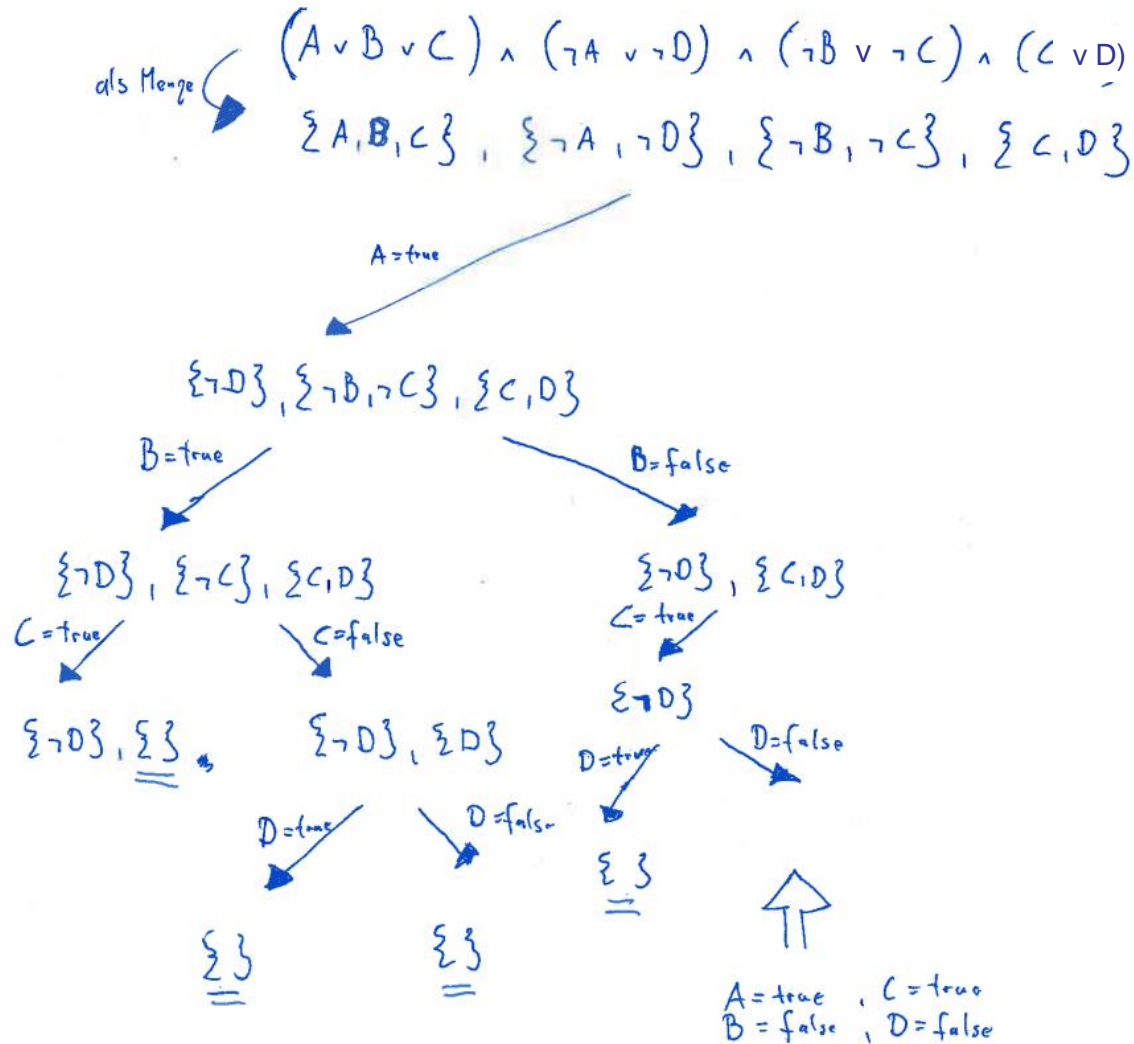 (A ∨ B ∨ C) ∧ (¬A ∨ ¬D) ∧ (¬B ∨ ¬C) ∧ (C ∨ D)
als Menge
{A,B,C}, {¬A,¬D}, {¬B,¬C}, {C,D}
A=true
{¬D}, {¬B,¬C}, {C,D}
B=true B=false
{¬D}, {¬C}, {C,D} {¬D}, {C,D}
C=true C=false C=true
{¬D}, {} {¬D}, {D} {¬D}
D=true D=false D=true D=false
{} {} {}
A=true, C=true
B=false, D=false